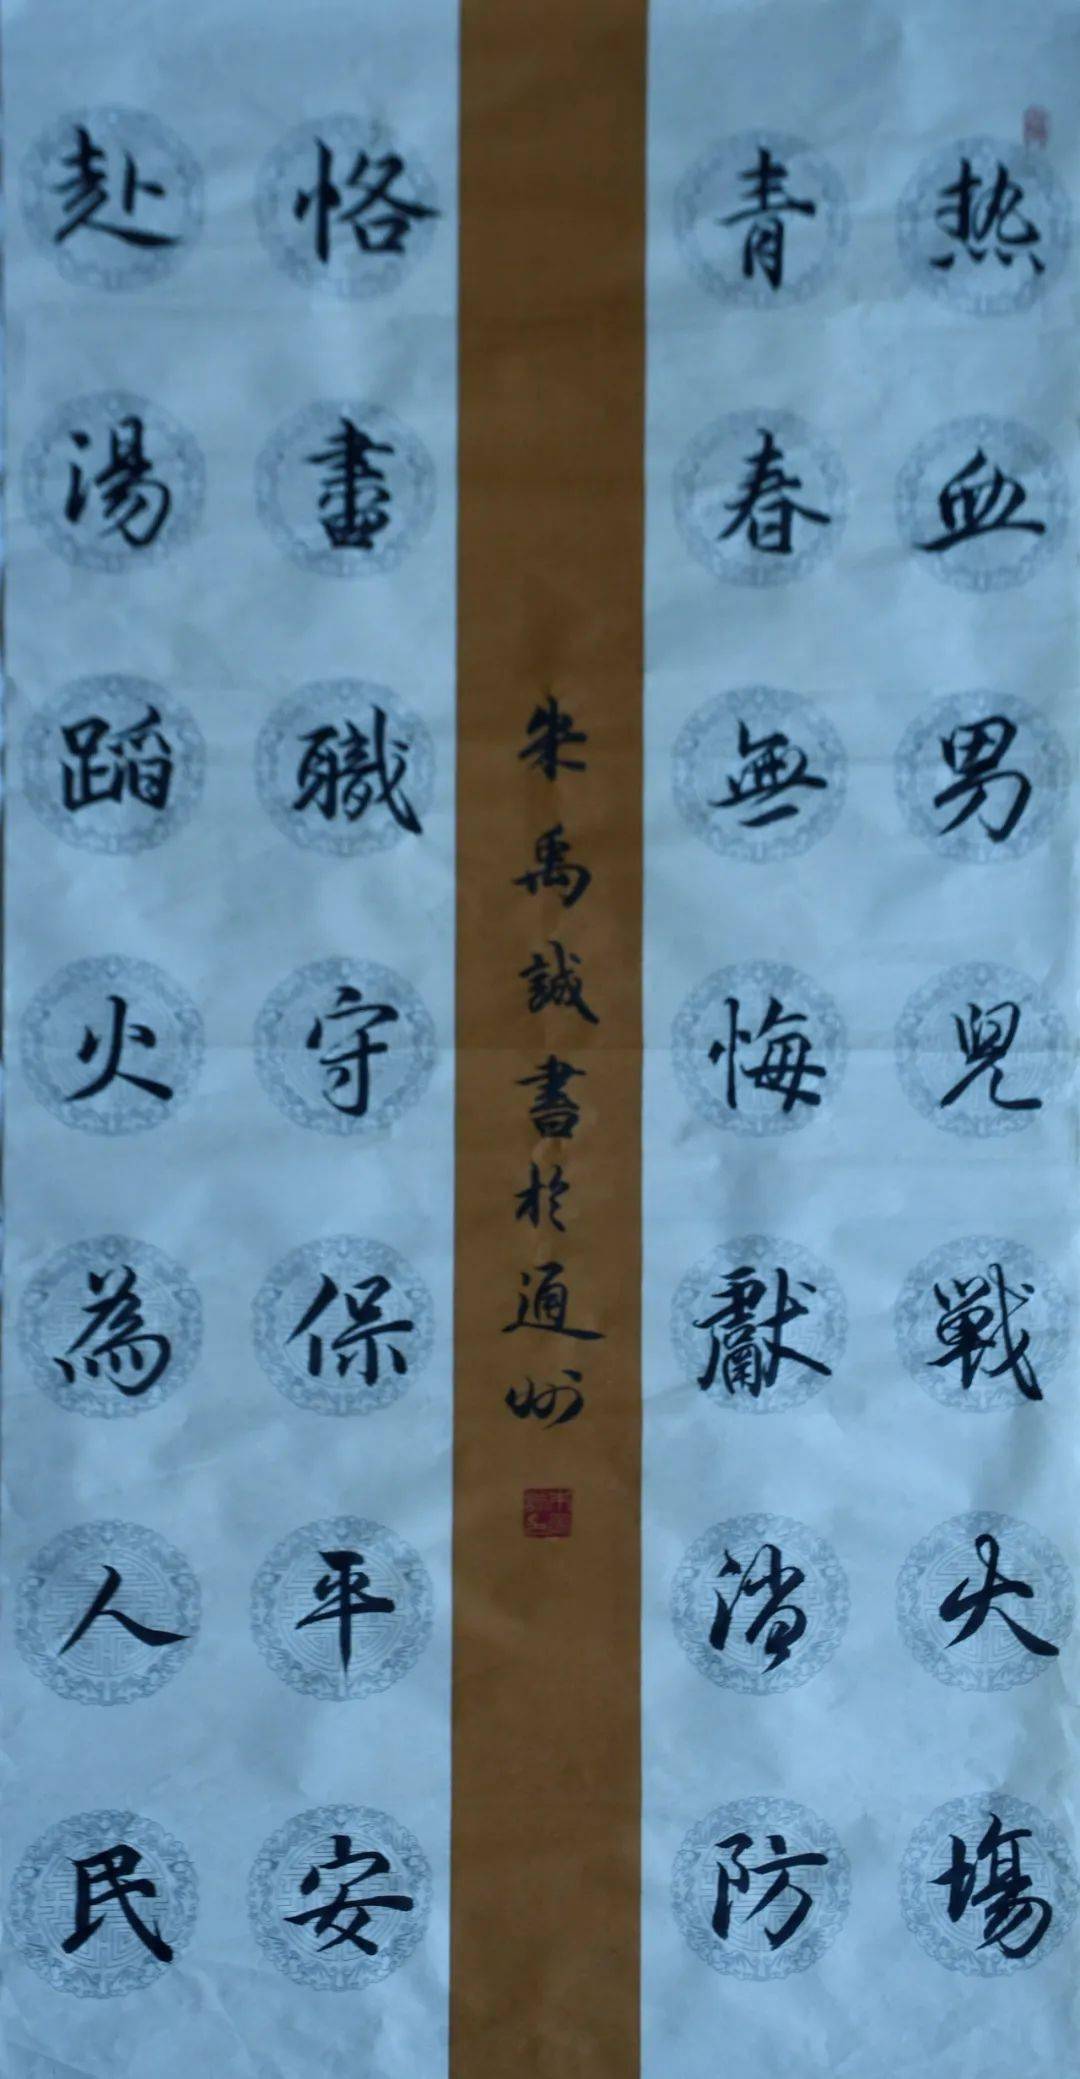 热血男兒戦火塲
青春無悔獻消防
朱禹誠書於通州
恪盡職守保平安
赴湯蹈火為人民